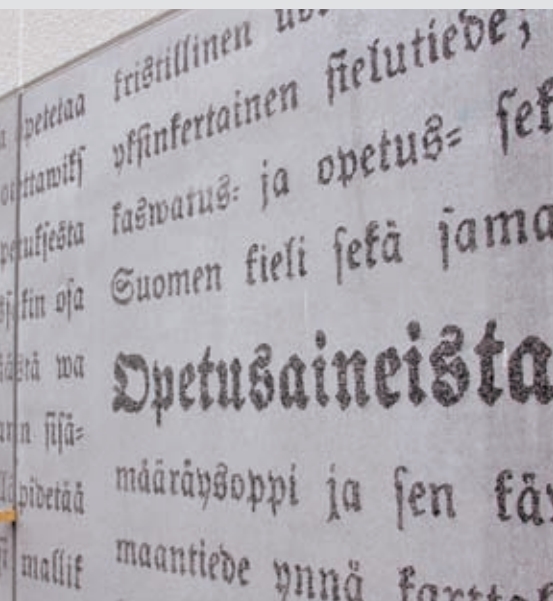 petetaa
ottawiks
petuksesta
kin osa
wa
sisä=
pidetää
mallik
kristillinen
yksinkertainen sielutiede,
kaswatus= ja opetus= sek
Suomen kieli sekä sama
Opetusaineista
määräysoppi ja sen
maantiede ynnä